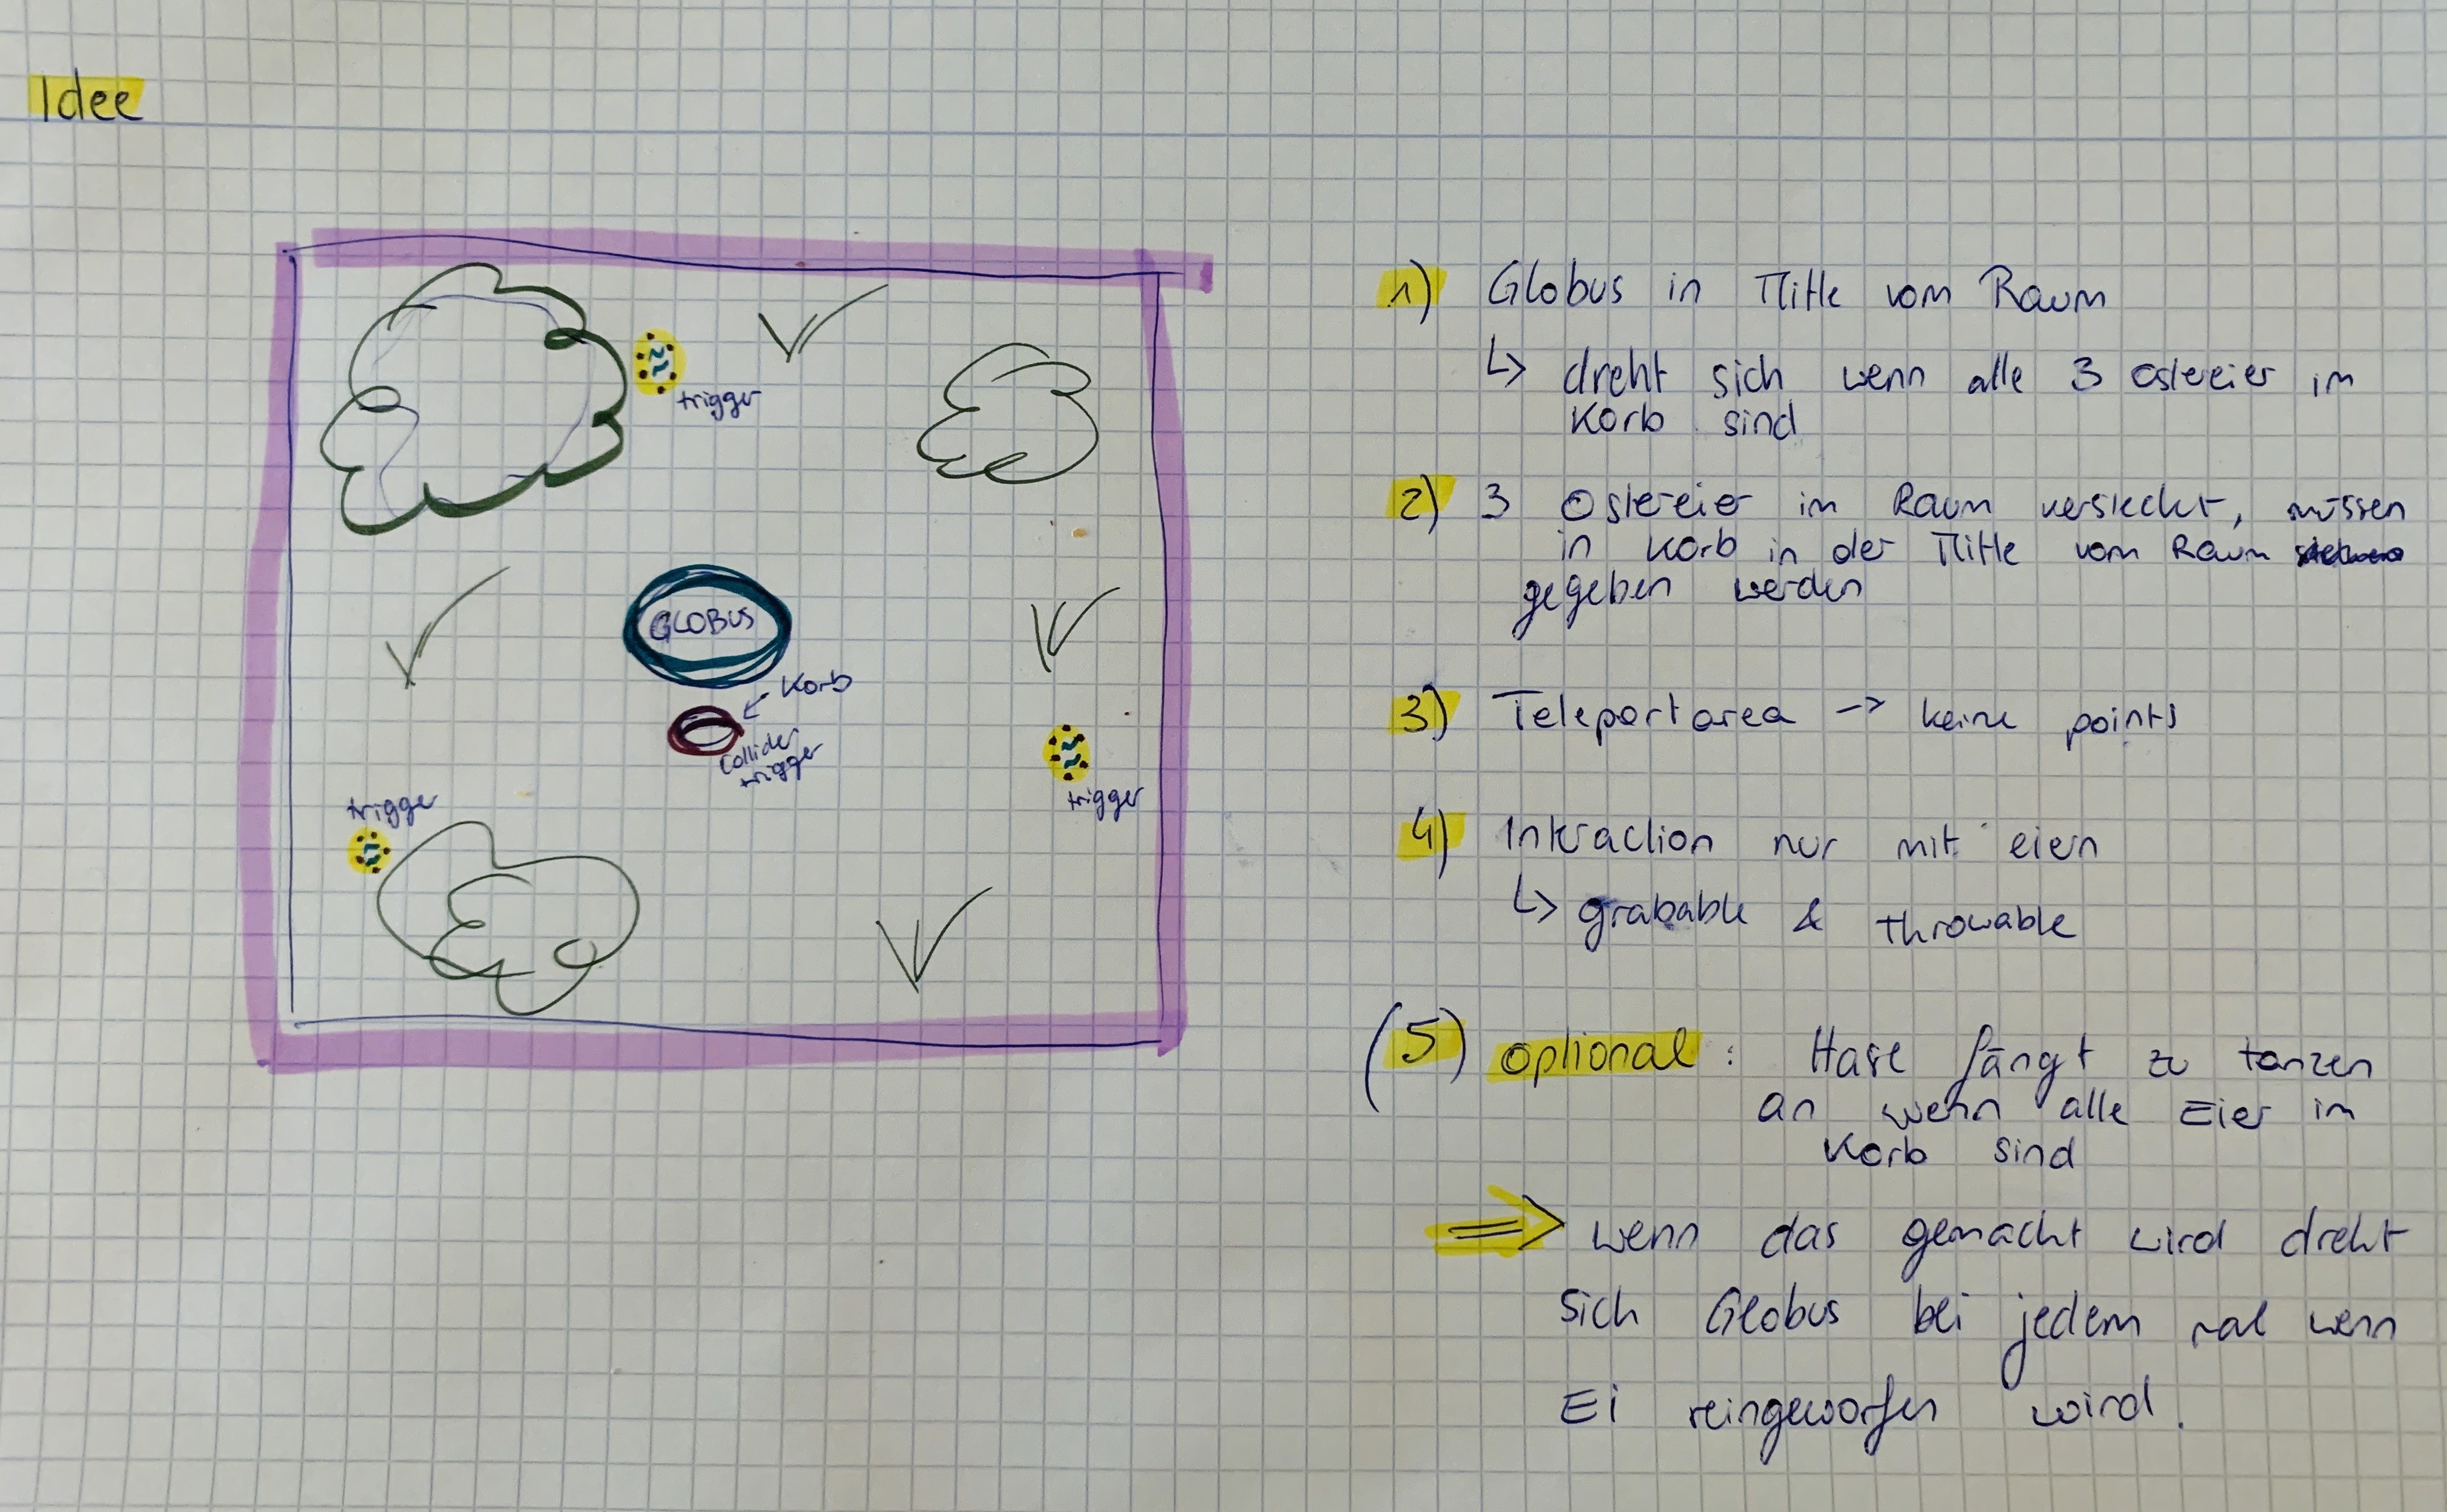 Idee
trigger
GLOBUS
Korb
collider
trigger
trigger
trigger
1) Globus in Mitte vom Raum
↳ dreht sich wenn alle 3 ostereier im
Korb sind
2) 3 Ostereier im Raum versteckt, müssen
in Korb in der Mitte vom Raum
gegeben werden
3) Teleportarea -> keine points
4) Interaction nur mit eiern
↳ grabable & throwable
(5) optional: Hase fängt zu tanzen
an wenn alle Eier im
Korb sind
⇒ wenn das gemacht wird dreht
sich Globus bei jedem mal wenn
Ei reingeworfen wird.